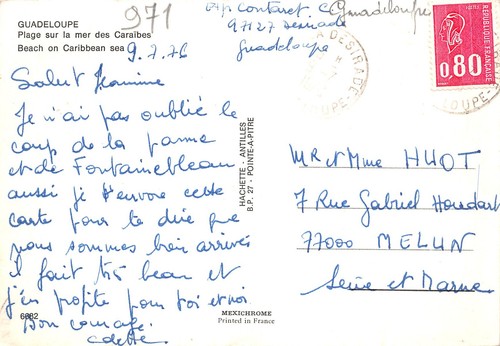 GUADELOUPE
Plage sur la mer des Caraïbes
Beach on Caribbean sea
971
9.7.76
Salut Jeannine
Je n'ai pas oublié le
coup de la panne
et de Fontainebleau
aussi je t'envoie cette
carte pour te dire que
nous sommes bien arrivés
il fait très beau et
j'en profite pour toi et moi
Bon courage.
Colette
6682
HACHETTE - ANTILLES
B.P. 27 - POINTE-A-PITRE
MEXICHROME
Printed in France
97127 Desirade
Guadeloupe
Guadeloupe
DESIRADE
REPUBLIQUE FRANCAISE
0,80
MR et Mme HUOT
7 Rue Gabriel Houdart
77000 MELUN
Seine et Marne